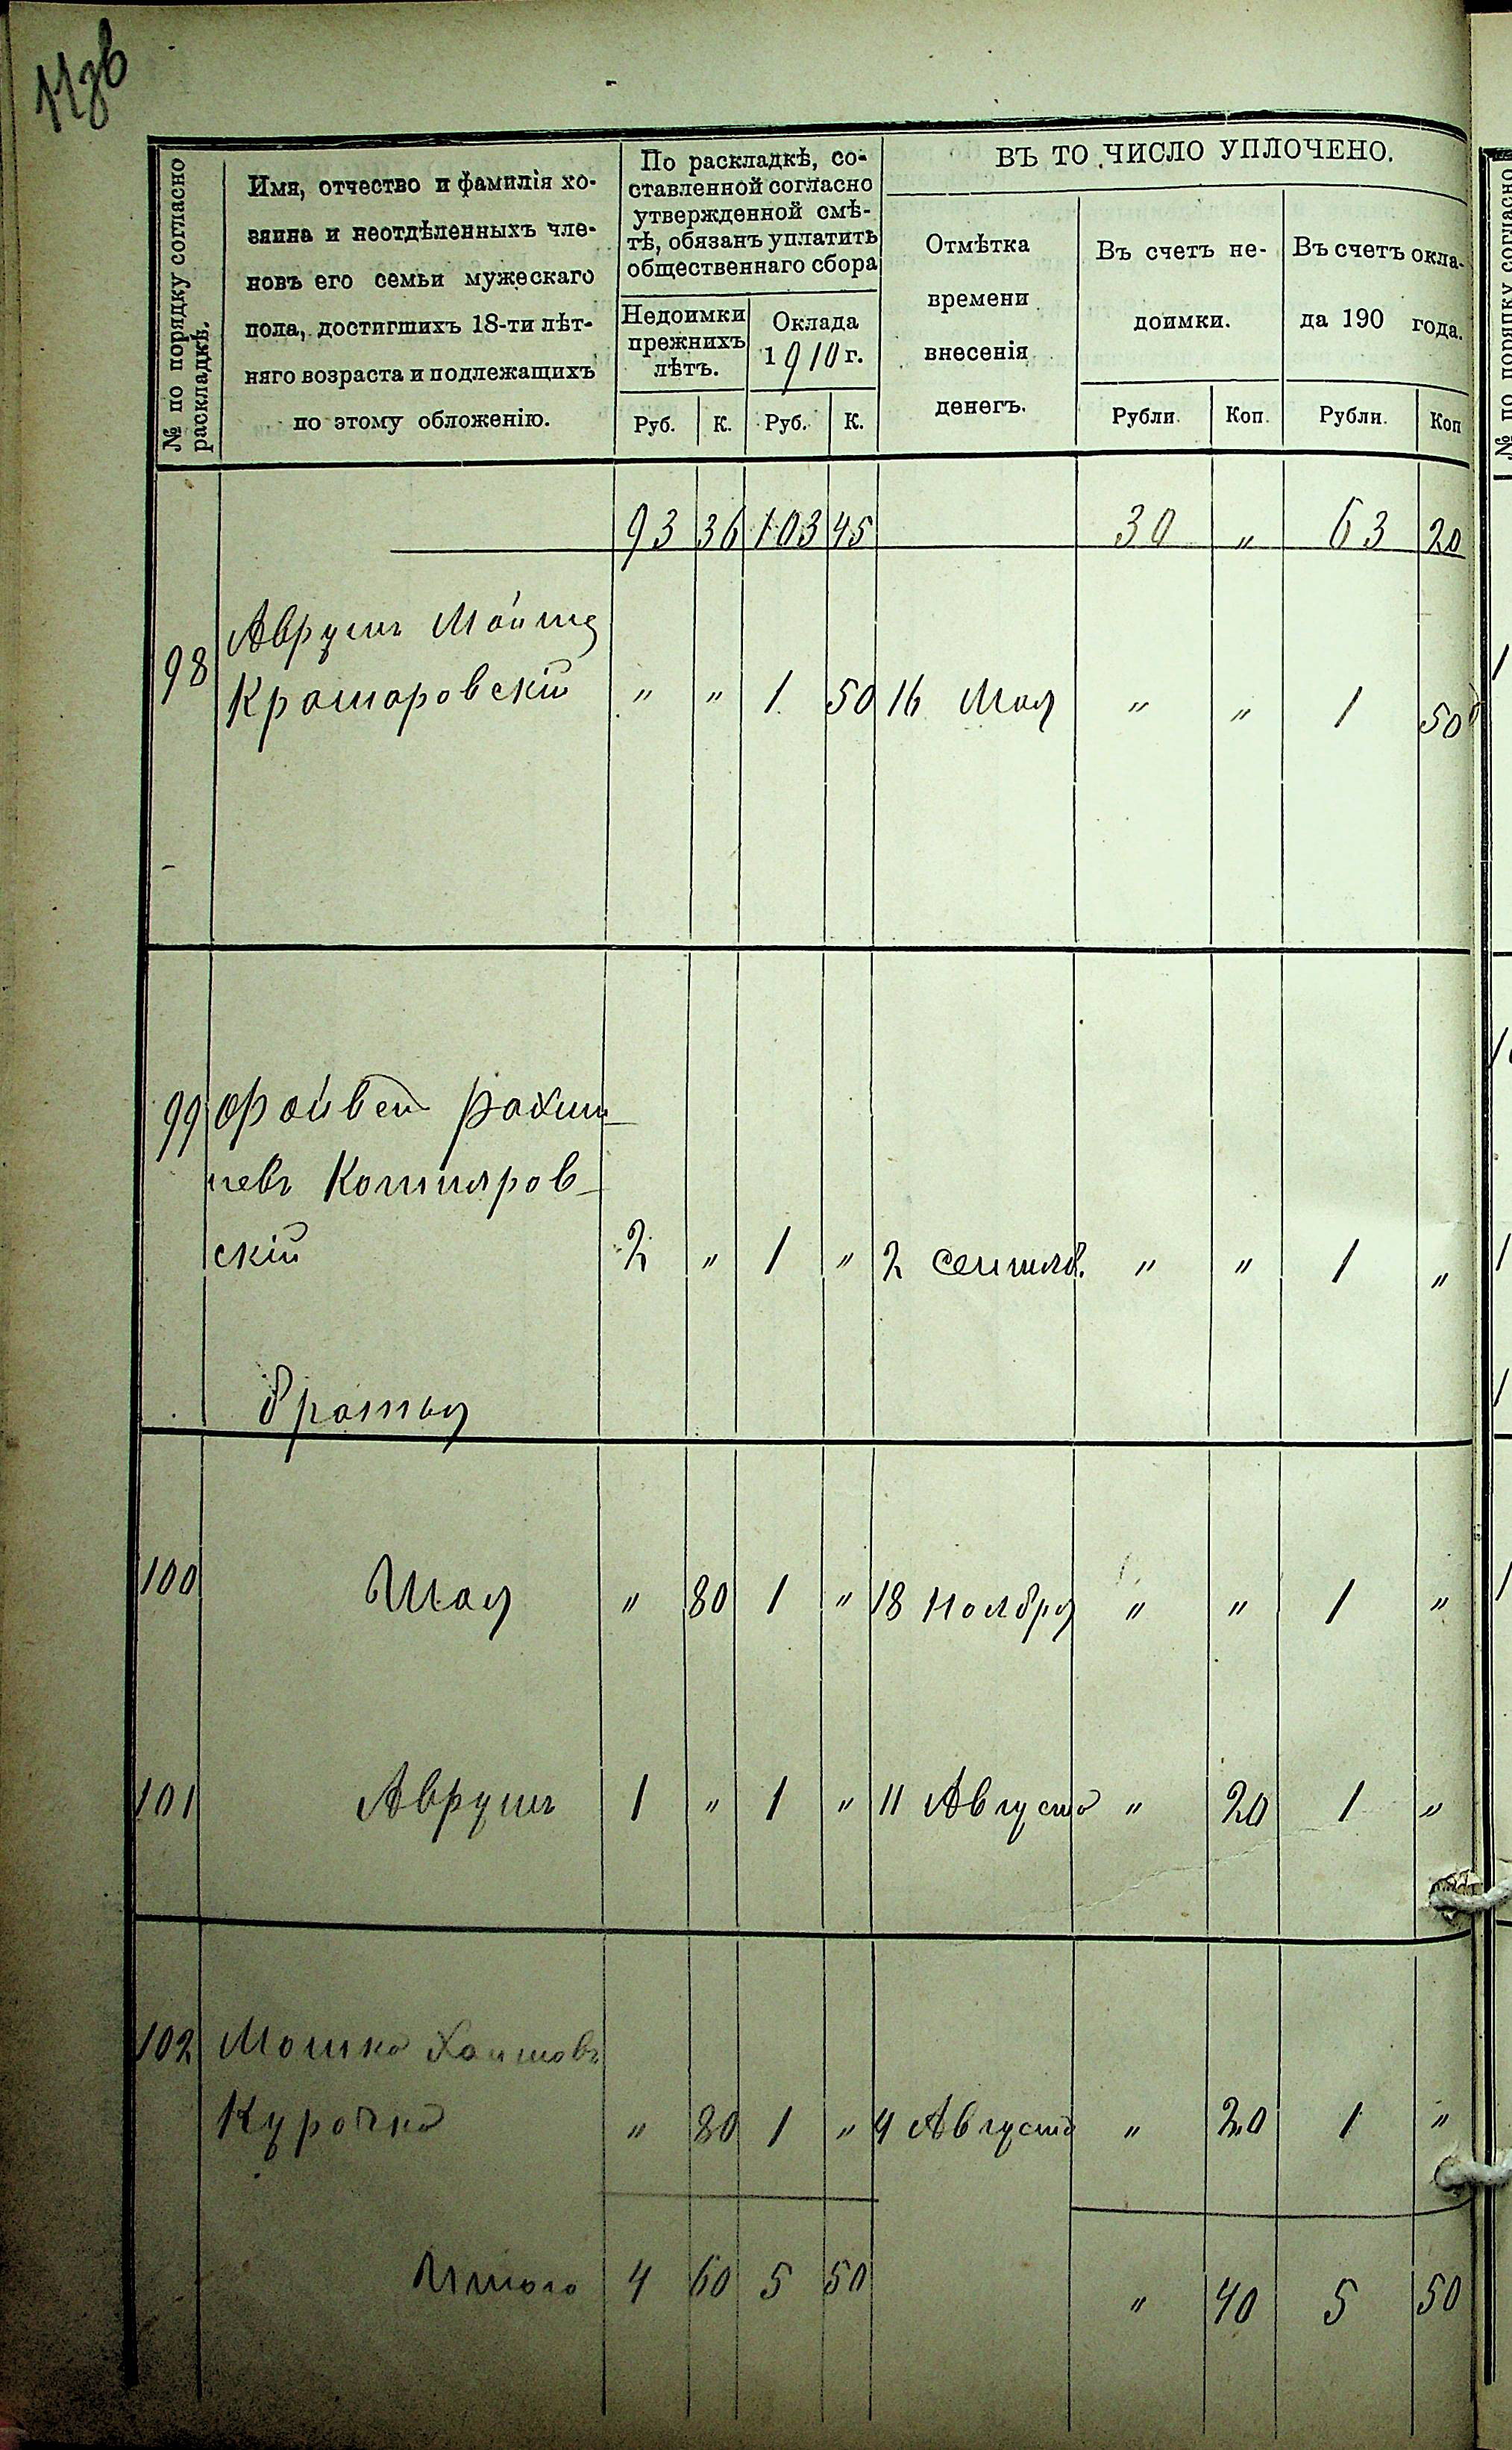 № по порядку согласно раскладкѣ.
Имя, отчество и фамилія хо-
зяина и неотдѣленныхъ чле-
новъ его семьи мужескаго
пола, достигшихъ 18-ти лѣт-
няго возраста и подлежащихъ
по этому обложенію.
По раскладкѣ, со-
ставленной согласно
утвержденной смѣ-
тѣ, обязанъ уплатить
общественнаго сбора
Недоимки
прежнихъ
лѣтъ.
Оклада
1910 г.
Руб. К. Руб. К.
ВЪ ТО ЧИСЛО УПЛОЧЕНО.
Отмѣтка
времени
внесенія
денегъ.
Въ счетъ не-
доимки.
Рубли. Коп.
Въ счетъ окла-
да 190 года.
Рубли. Коп
93 36 103 45 30 " 63 20
98 Аврумъ
Крамаровскій " " 1 50 16 Мая " " 1 50
99 Файвель Рахми-
левъ Котляров-
скій 2 " 1 " 2 сентяб. " " 1 "
братья
100 Шая " 80 1 " 18 Ноября " " 1 "
101 Аврумъ 1 " 1 " 11 Августа " 20 1 "
102 Мошко Хаимовъ
Курочка " 80 1 " 4 Августа " 20 1 "
Итого 4 60 5 50 " 40 5 50
№ по порядку согласно